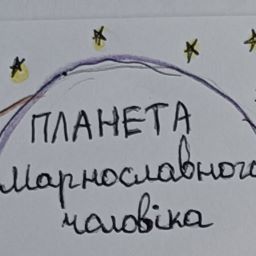 ПЛАНЕТА
Марнославного
чоловіка